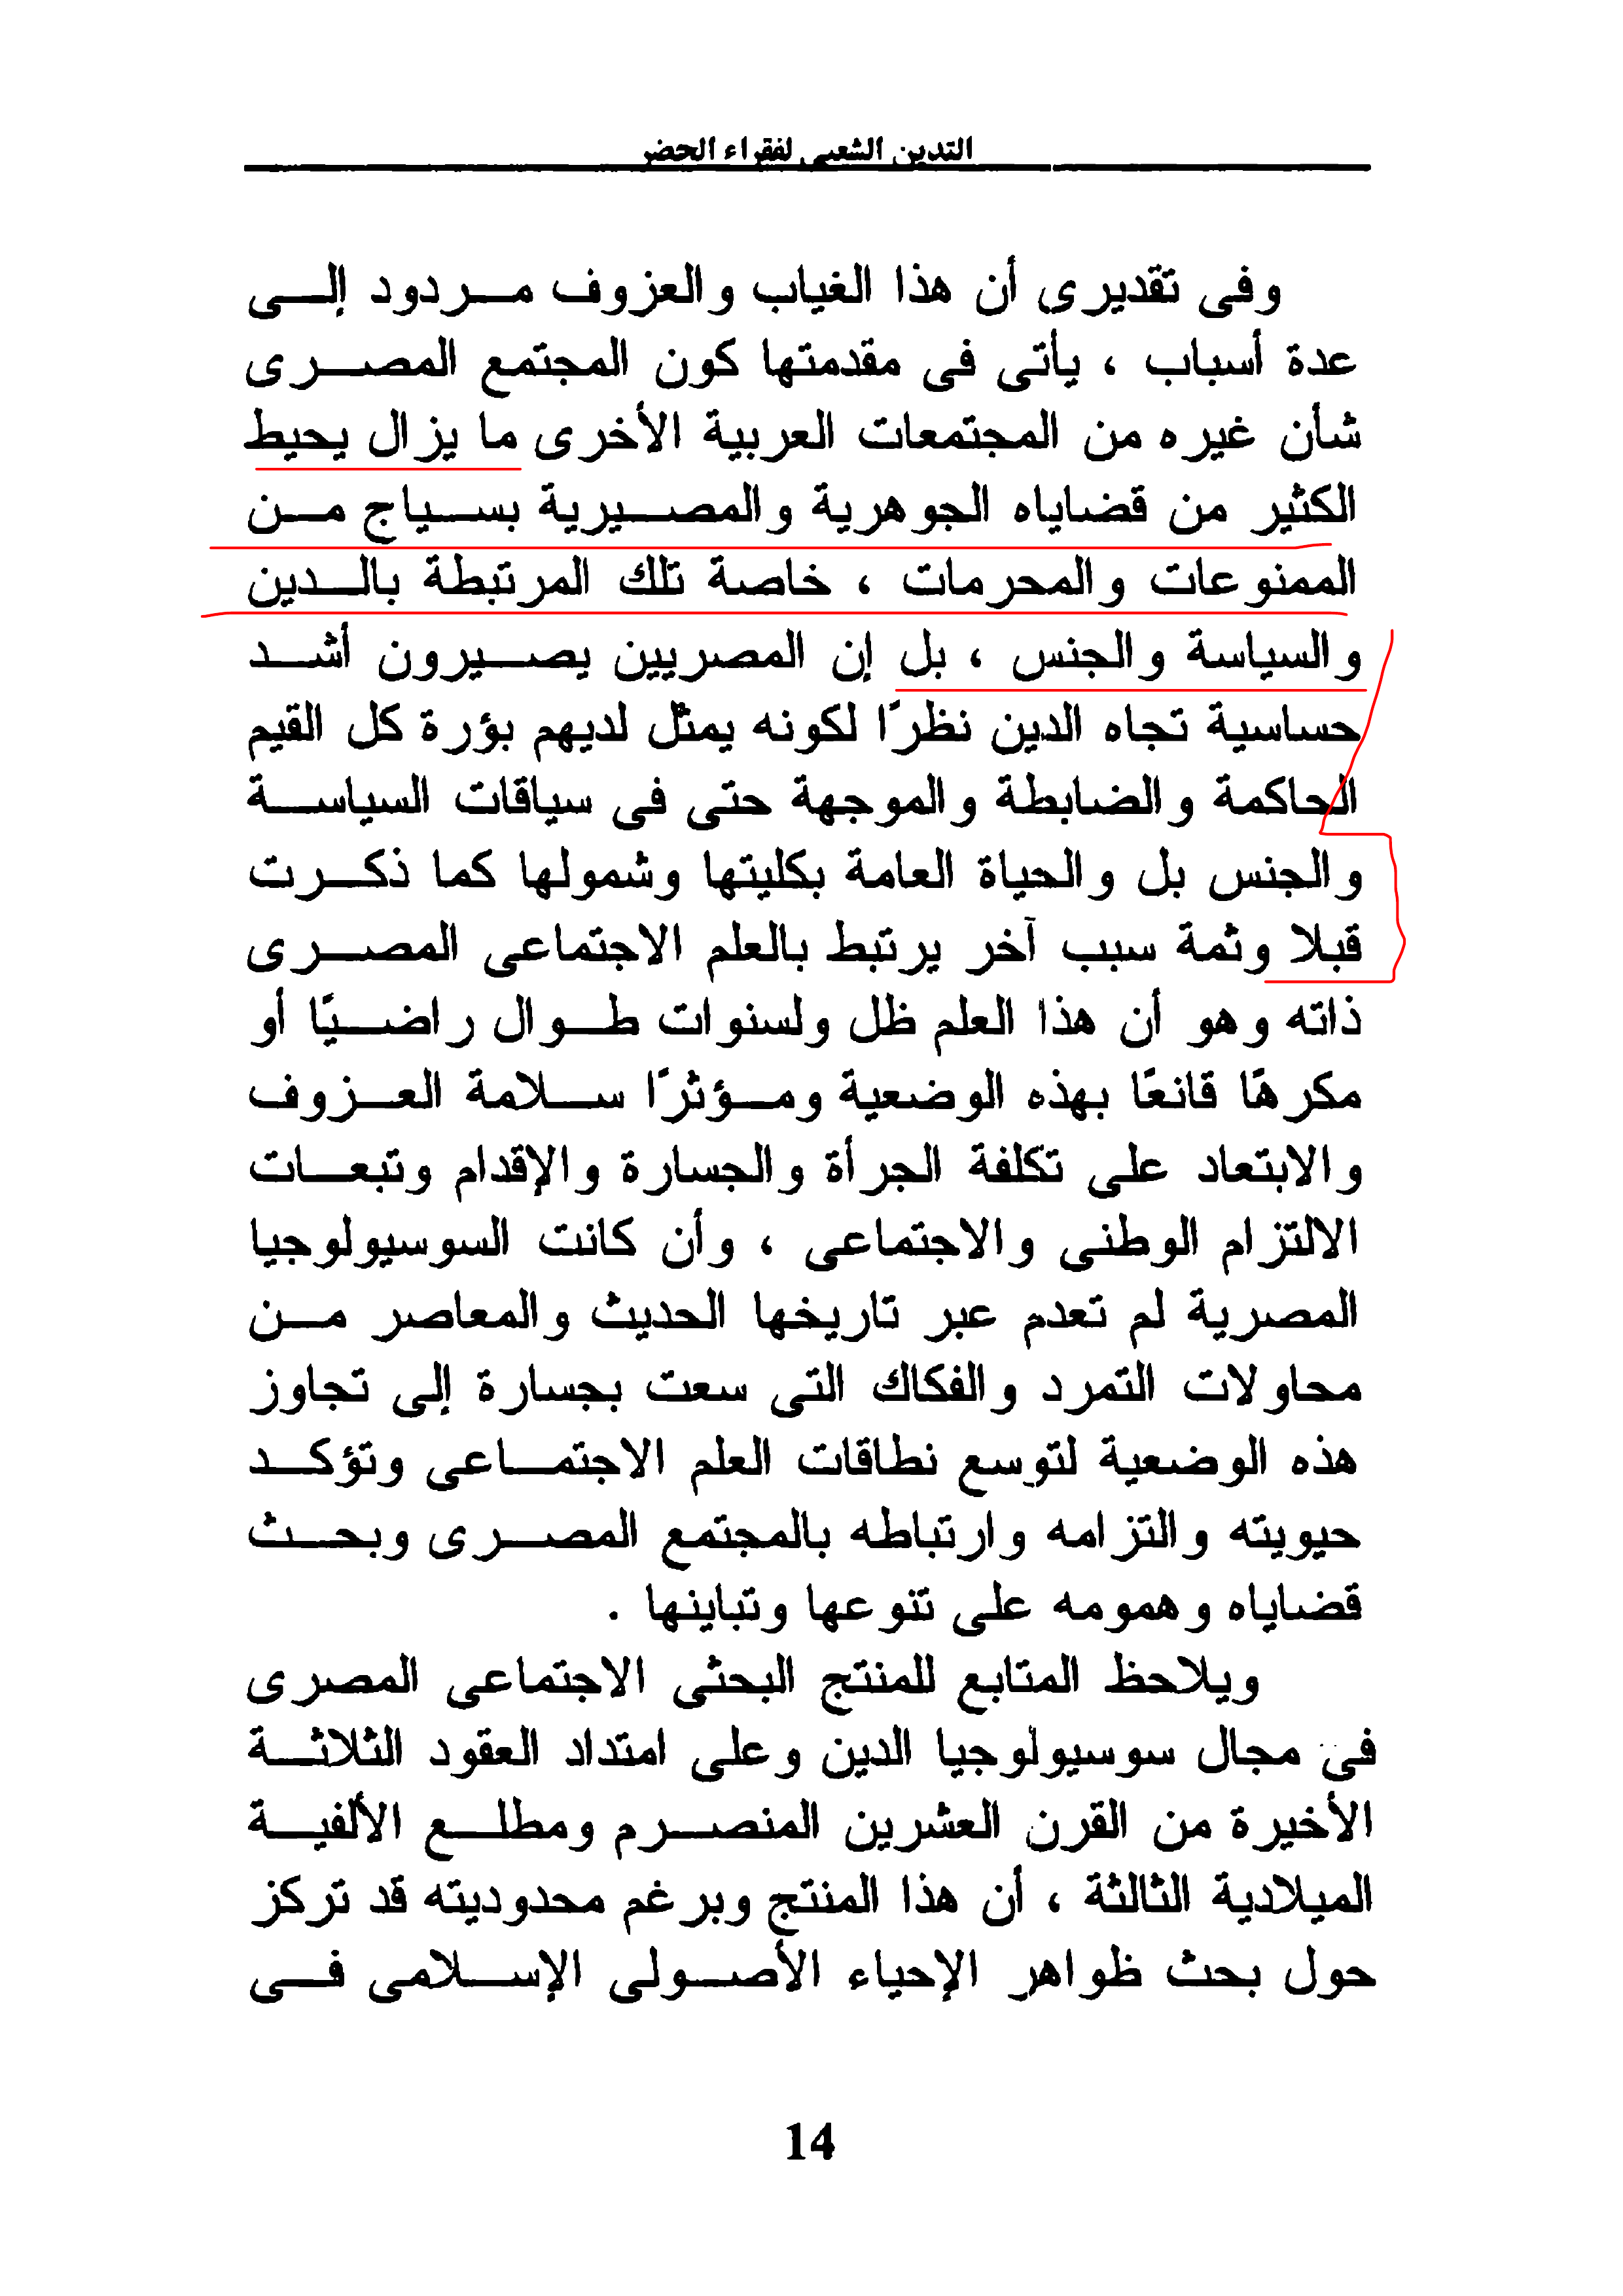 التدين الشعبى لفقراء الحضر
وفى تقديرى أن هذا الغياب والعزوف مردود إلى
عدة أسباب ، يأتى فى مقدمتها كون المجتمع المصرى
شأن غيره من المجتمعات العربية الأخرى ما يزال يحيط
الكثير من قضاياه الجوهرية والمصيرية بسياج من
الممنوعات والمحرمات ، خاصة تلك المرتبطة بالدين
والسياسة والجنس ، بل إن المصريين يصيرون أشد
حساسية تجاه الدين نظرًا لكونه يمثل لديهم بؤرة كل القيم
الحاكمة والضابطة والموجهة حتى فى سياقات السياسة
والجنس بل والحياة العامة بكليتها وشمولها كما ذكرت
قبلا وثمة سبب آخر يرتبط بالعلم الاجتماعى المصرى
ذاته وهو أن هذا العلم ظل ولسنوات طوال راضيًا أو
مكرهًا قانعًا بهذه الوضعية ومؤثرًا سلامة العزوف
والابتعاد على تكلفة الجرأة والجسارة والإقدام وتبعات
الالتزام الوطنى والاجتماعى ، وأن كانت السوسيولوجيا
المصرية لم تعدم عبر تاريخها الحديث والمعاصر من
محاولات التمرد والفكاك التى سعت بجسارة إلى تجاوز
هذه الوضعية لتوسع نطاقات العلم الاجتماعى وتؤكد
حيويته والتزامه وارتباطه بالمجتمع المصرى وبحث
قضاياه وهمومه على تنوعها وتباينها .
ويلاحظ المتابع للمنتج البحثى الاجتماعى المصرى
فى مجال سوسيولوجيا الدين وعلى امتداد العقود الثلاثة
الأخيرة من القرن العشرين المنصرم ومطلع الألفية
الميلادية الثالثة ، أن هذا المنتج وبرغم محدوديته قد تركز
حول بحث ظواهر الإحياء الأصولى الإسلامى فى
14